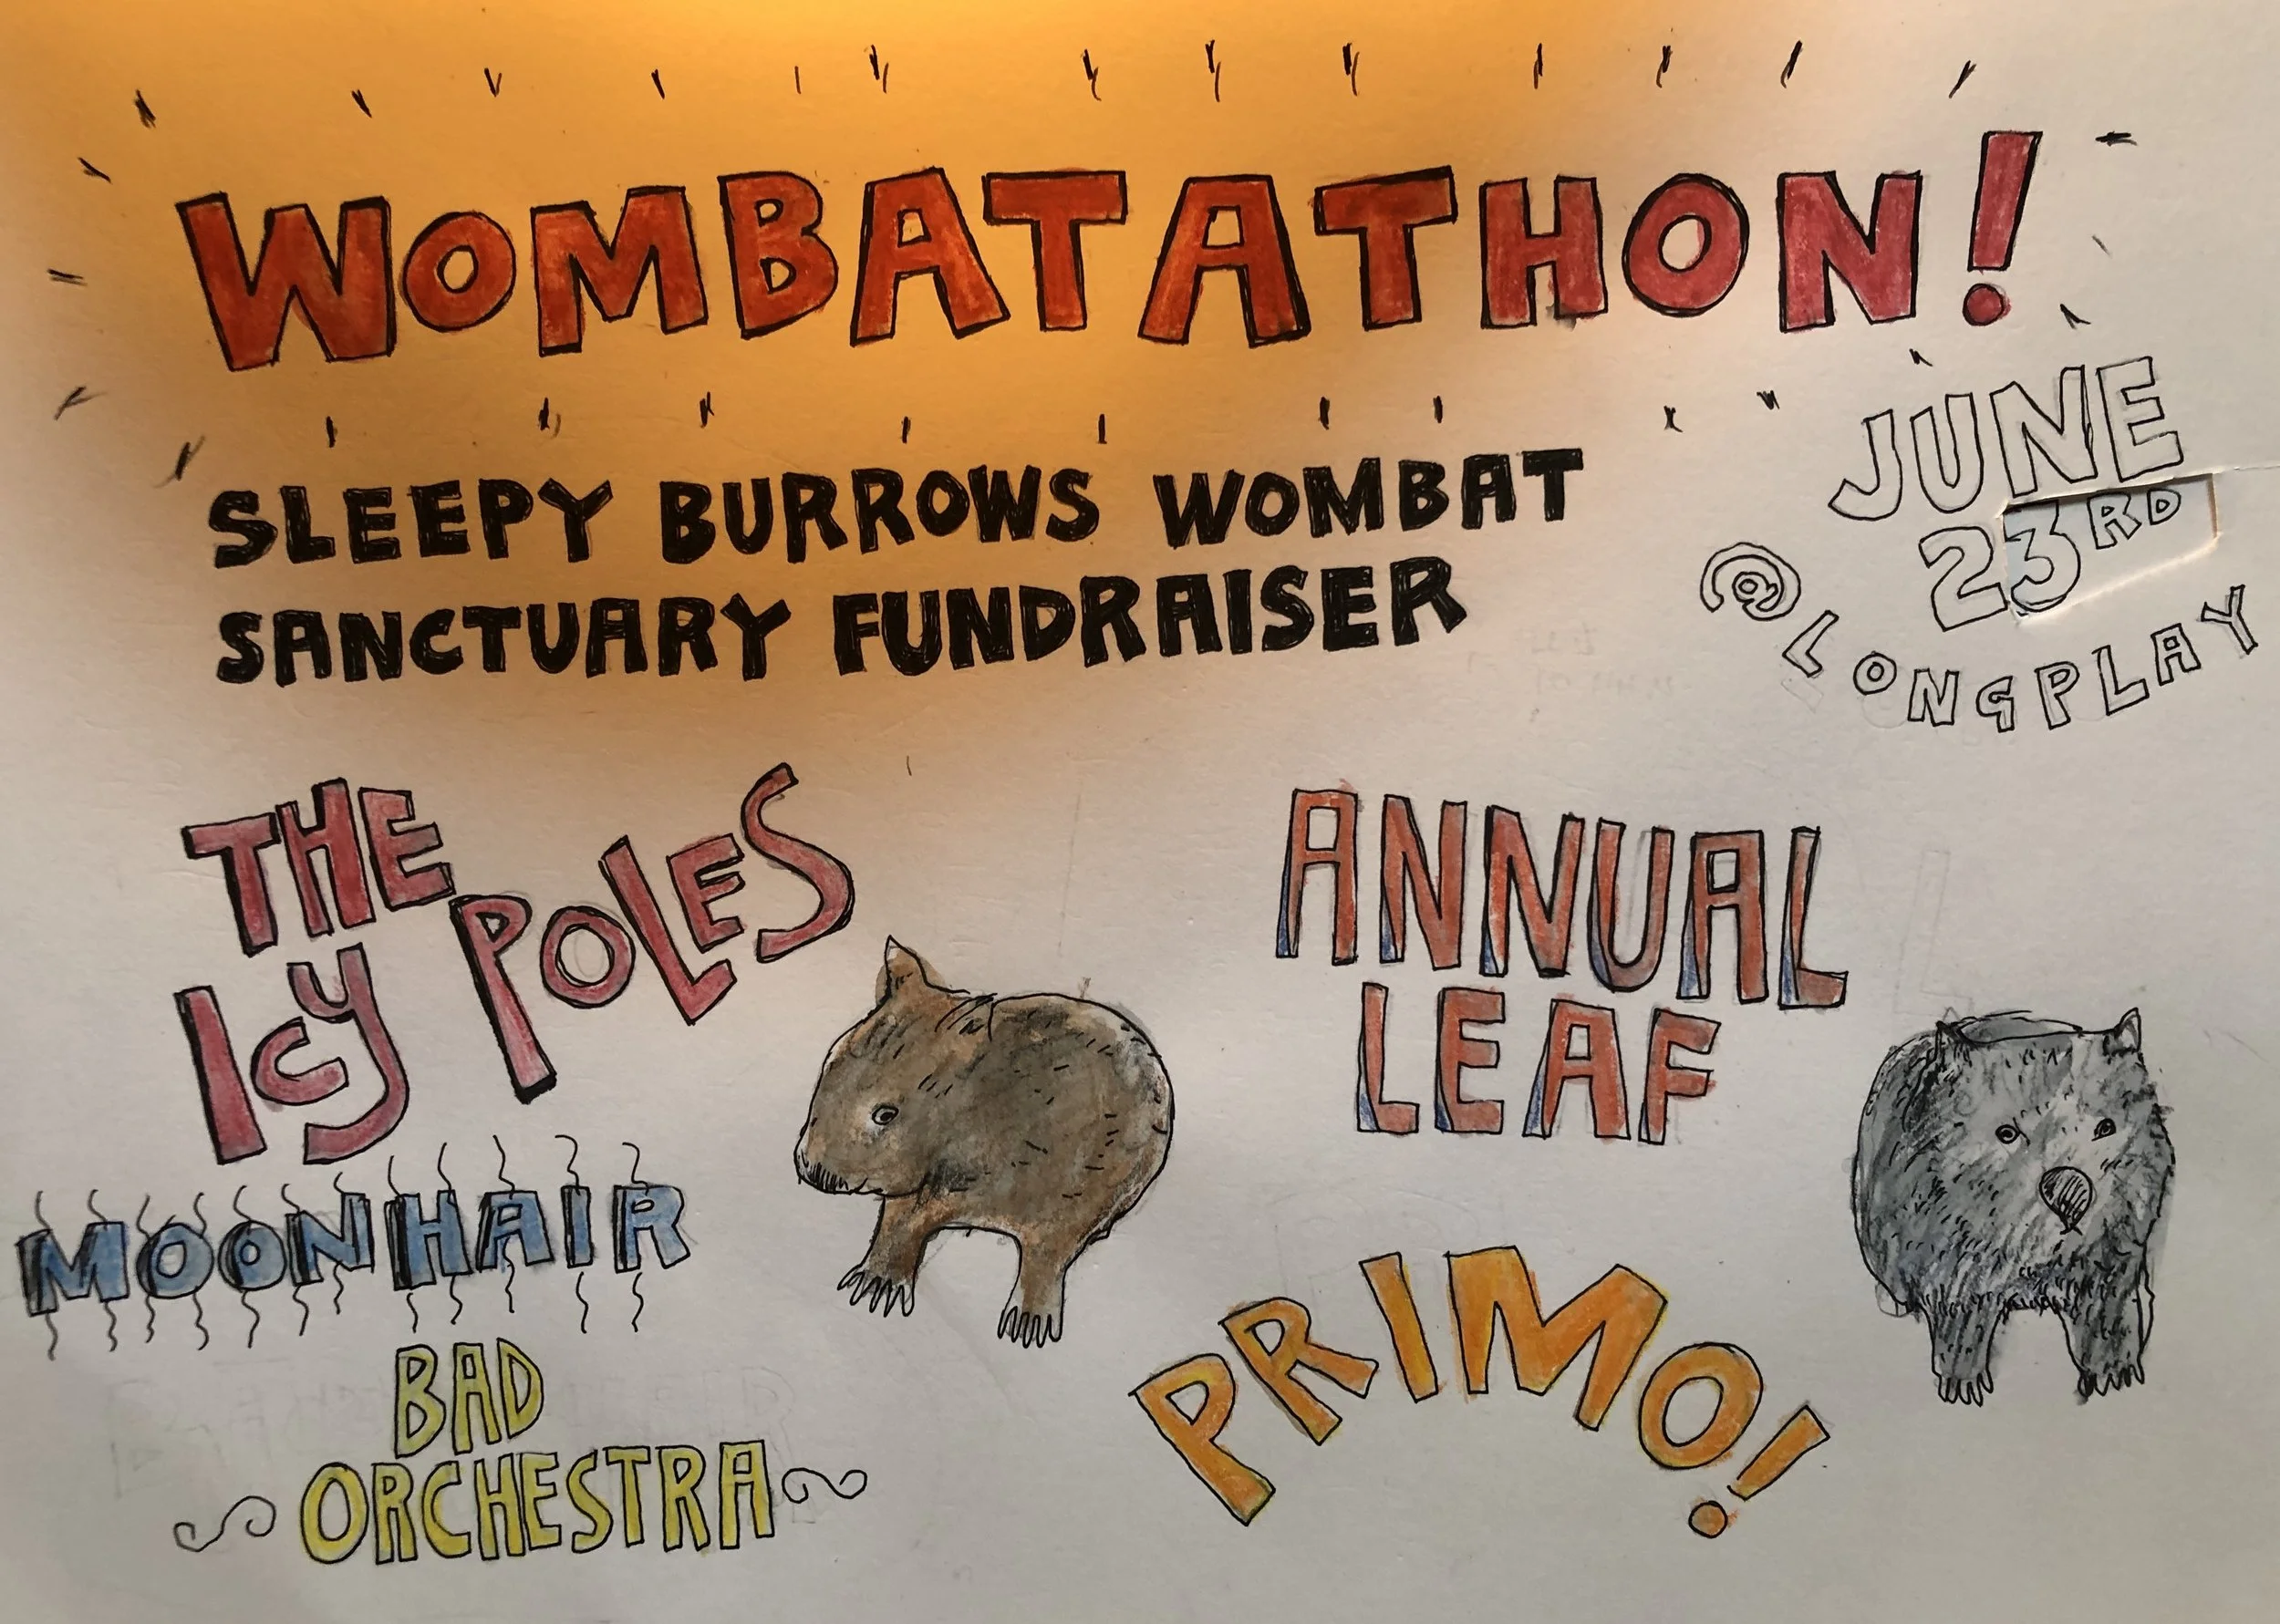 WOMBATATHON!
SLEEPY BURROWS WOMBAT
SANCTUARY FUNDRAISER
JUNE
23RD
@ LONGPLAY
THE
ICY POLES
ANNUAL
LEAF
MOONHAIR
PRIMO!
BAD
ORCHESTRA